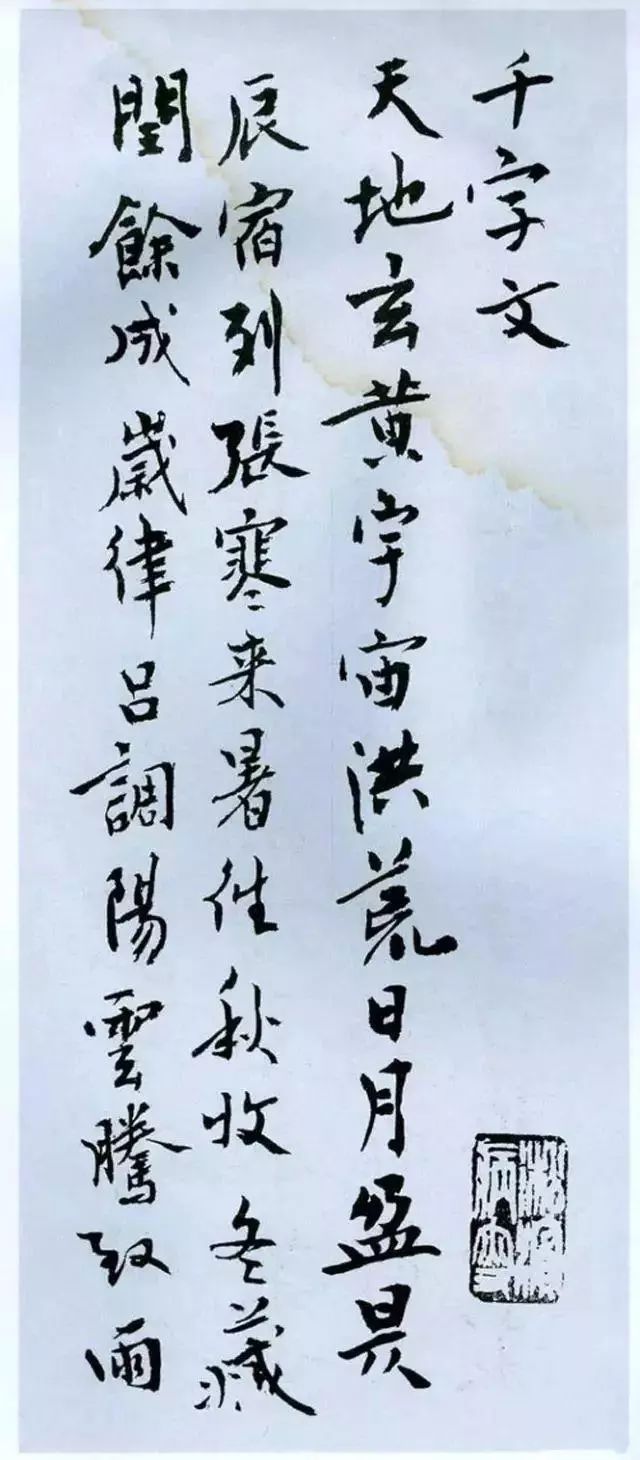 千字文
天地玄黄宇宙洪荒日月盈昃
辰宿列張寒来暑往秋收冬藏
閏餘成歲律吕調陽雲騰致雨